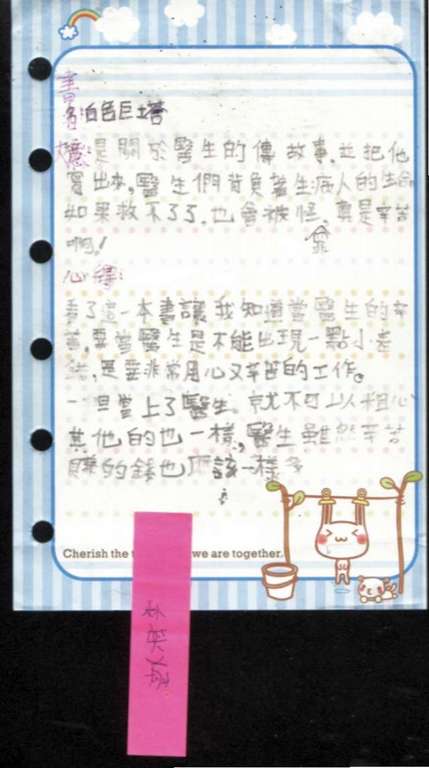 書名:白色巨塔
大意:是關於醫生的傳故事,並把他
寫出來,醫生們背負著生病人的生命
如果救不了了,也會被怪,真是辛苦
啊!
心得:
看了這一本書讓我知道當醫生的辛
苦,要當醫生是不能出現一點小差
錯,是要非常用心又辛苦的工作。
一但當上了醫生,就不可以粗心
其他的也一樣,醫生雖然辛苦
賺的錢也應該一樣多
Cherish the t we are together.
林